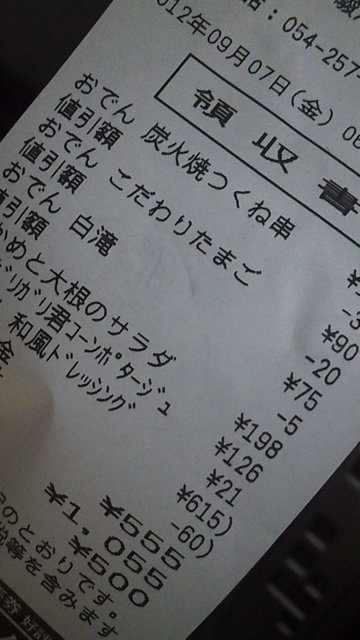 話：054-257
2012年09月07日(金) 06
領収書
おでん 炭火焼つくね串 ¥
値引額 -3
おでん こだわりたまご ¥90
値引額 -20
おでん 白滝 ¥75
値引額 -5
かめと大根のサラダ ¥198
ガリガリ君コーンポタージュ ¥126
和風ドレッシング ¥21
¥615)
-60)
金 ¥555
¥1,055
¥500
のとおりです。
等を含みます